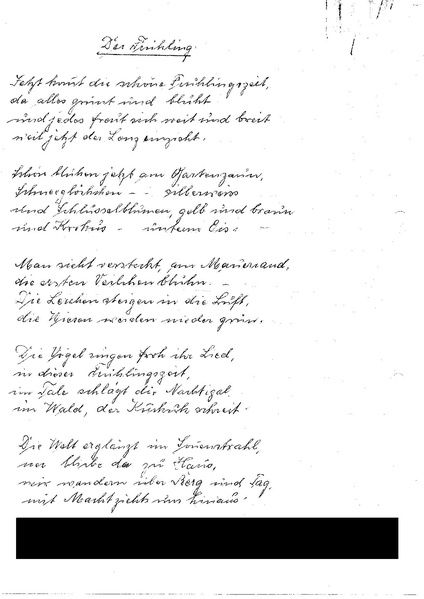 Der Frühling
Jetzt kom̄t die schöne Frühlingszeit,
da alles grünt und blüht
und jedes freut sich weit und breit
weil jetzt der Lenz einzieht.
Schon blühen jetzt am Gartenzaun,
Schneeglöckchen - - silberweiss
und Schlüsselblumen, gelb und braun
und Krokus - unterm Eis.
Man sieht versteckt, am Mauerrand,
die ersten Veilchen blühn. -
Die Lerchen steigen in die Luft,
die Wiesen werden wieder grün.
Die Vögel singen froh ihr Lied,
in dieser Frühlingszeit,
im Tale schlägt die Nachtigal
im Wald, der Kuckuk schreit.
Die Welt erglänzt im Sonnenstrahl,
wer bliebe da zu Haus,
wir wandern über Berg und Tag,
mit Macht ziehts uns hinaus.